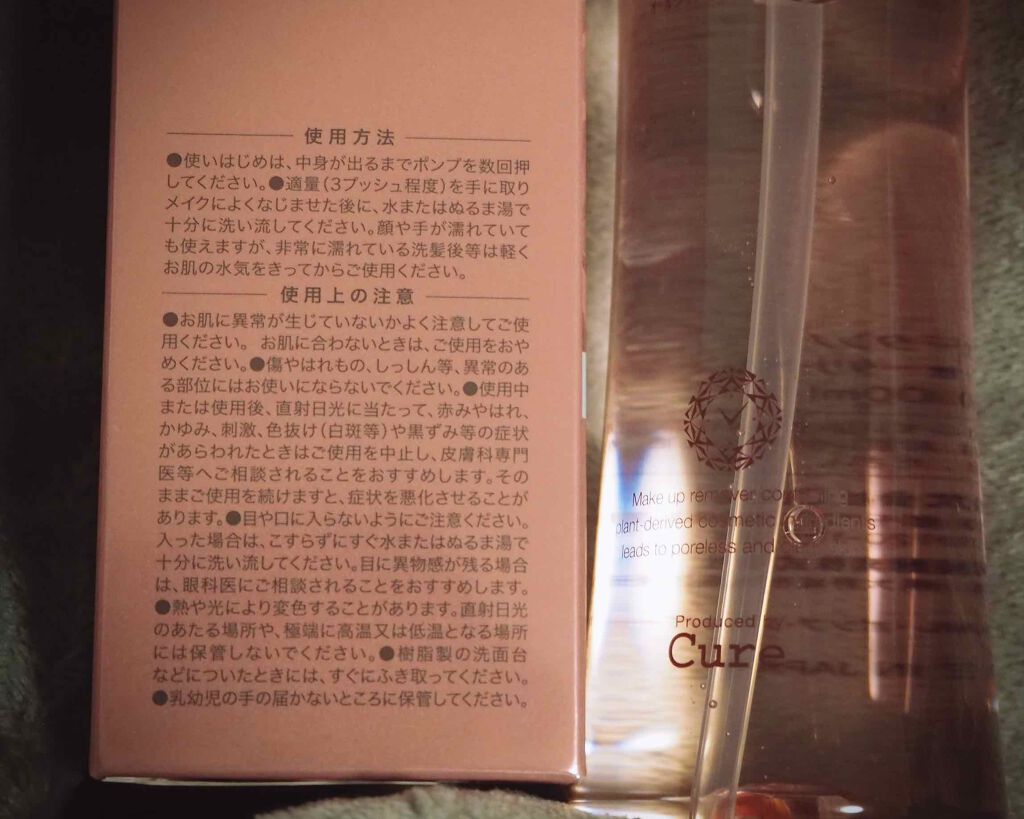 使用方法
●使いはじめは、中身が出るまでポンプを数回押
してください。●適量(3プッシュ程度)を手に取り
メイクによくなじませた後に、水またはぬるま湯で
十分に洗い流してください。顔や手が濡れていて
も使えますが、非常に濡れている洗髪後等は軽く
お肌の水気をきってからご使用ください。
使用上の注意
●お肌に異常が生じていないかよく注意してご使
用ください。 お肌に合わないときは、ご使用をおや
めください。●傷やはれもの、しっしん等、異常のあ
る部位にはお使いにならないでください。●使用中
または使用後、直射日光に当たって、赤みやはれ、
かゆみ、刺激、色抜け(白斑等)や黒ずみ等の症状
があらわれたときはご使用を中止し、皮膚科専門
医等へご相談されることをおすすめします。その
ままご使用を続けますと、症状を悪化させることが
あります。●目や口に入らないようにご注意ください。
入った場合は、こすらずにすぐ水またはぬるま湯で
十分に洗い流してください。目に異物感が残る場合
は、眼科医にご相談されることをおすすめします。
●熱や光により変色することがあります。直射日光
のあたる場所や、極端に高温又は低温となる場所
には保管しないでください。●樹脂製の洗面台
などについたときには、すぐにふき取ってください。
●乳幼児の手の届かないところに保管してください。
Make up remover containing
plant-derived cosmetic ingredients
leads to poreless and
Produced by
Cure